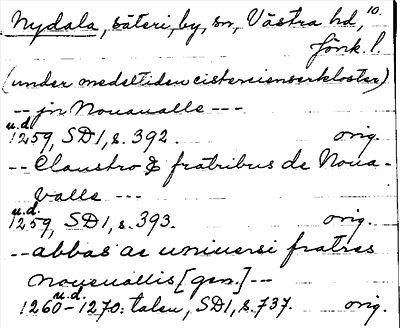 Nydala, säteri, by, sn, Västra hd, 10.
Jönk. l.
(under medeltiden cistercienserkloster)
-- jn Nouaualle ---
u.d.
1259, SD1, s. 392. orig.
-- Claustro & fratribus de Noua-
valle ---
u.d.
1259, SD1, s. 393. orig.
-- abbas ac uniuersi fratres
Noueuallis [gen.] --
u.d.
1260-1270: talen, SD1, s. 737. orig.